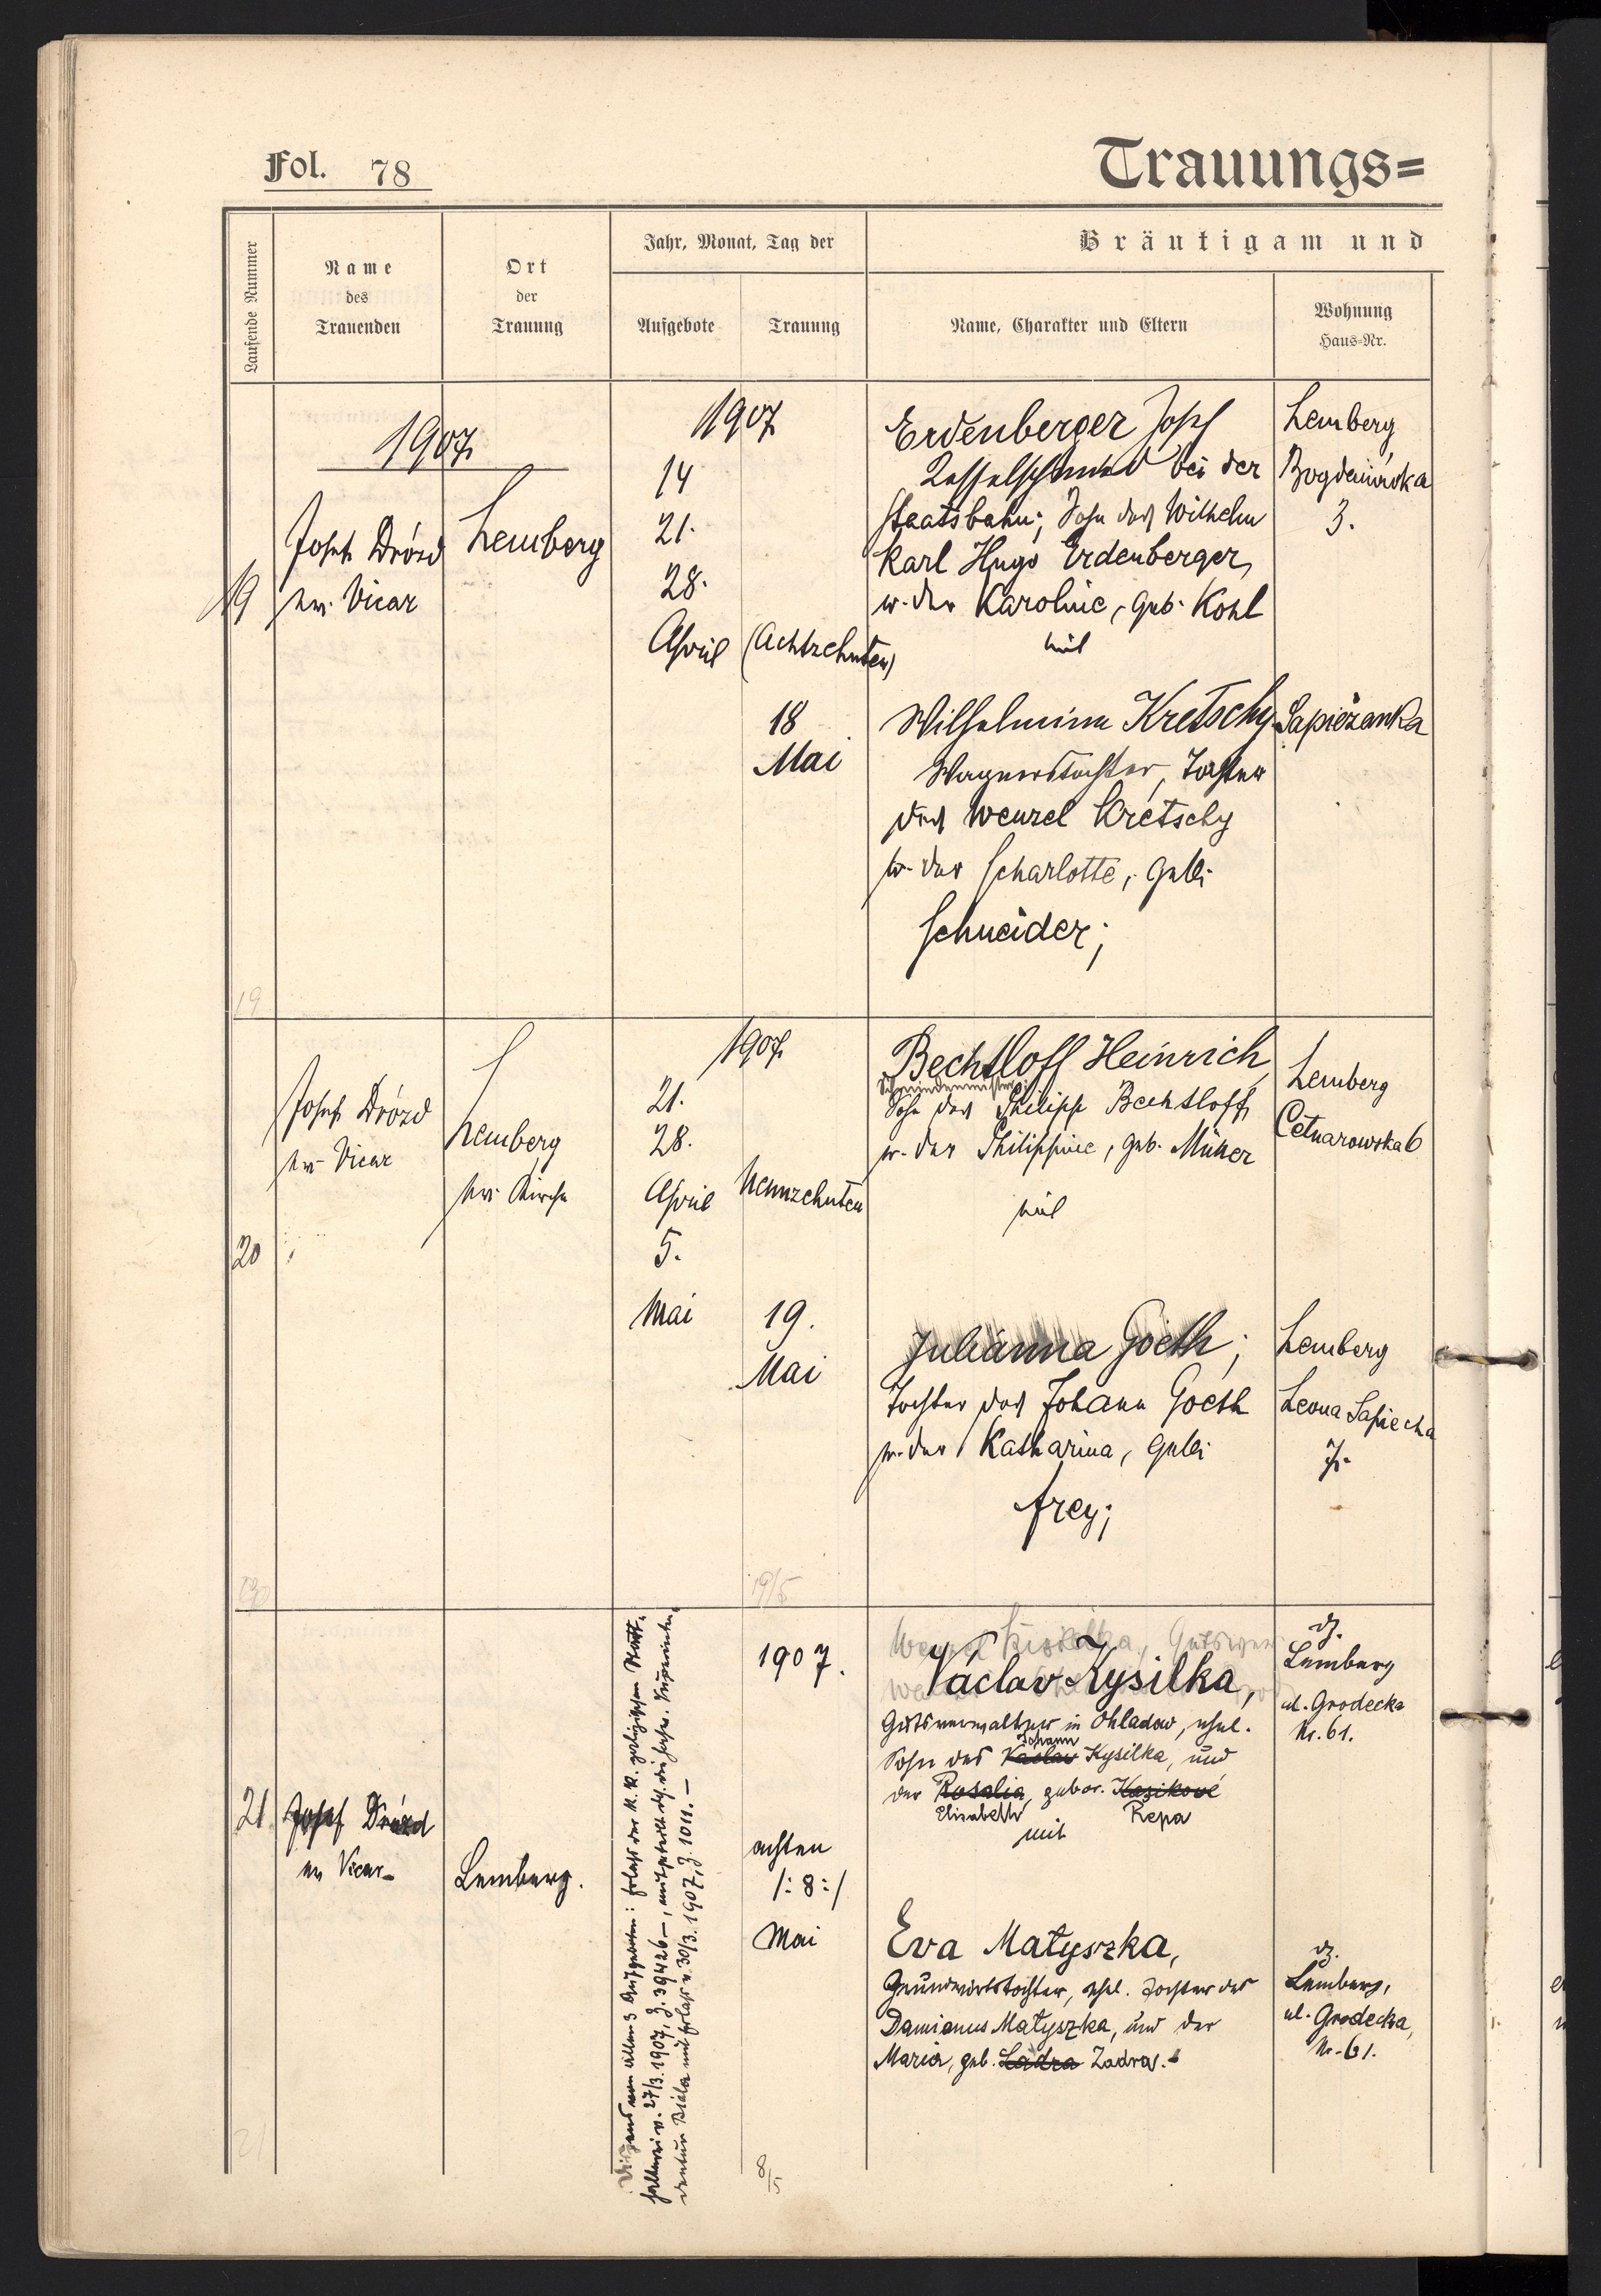 Fol. 78
Trauungs=
Laufende Nummer
Name
des
Trauenden
Ort
der
Trauung
Jahr, Monat, Tag der
Aufgebote
Trauung
Bräutigam und
Name, Charakter und Eltern
Wohnung
Haus=Nr.
1907
19
Josef Drózd
ev. Vicar
Lemberg
1907
14
21.
28.
April
(Achtzehnten)
18
Mai
Erdenberger Josef
Kesselschmied bei der
Staatsbahn; Sohn des Wilhelm
Karl Hugo Erdenberger,
u. der Karoline, geb. Kohl
mit
Wilhelmine Kretschy
Wagnerstochter, Tochter
des Wenzel Kretschy
u. der Scharlotte, geb.
Schneider;
Lemberg
Bogdanówka
3.
Sapieżanka
19
20
Josef Drózd
ev. Vicar
Lemberg
ev. Kirche
1907
21.
28.
April
5.
Mai
Neunzehnten
19.
Mai
Bechtloff Heinrich
Schmiedemeister
Sohn des Philipp Bechtloff,
u. der Philippine, geb. Müller
mit
Julianna Goeth;
Tochter des Johann Goeth
u. der Katharina, geb.
Frey;
Lemberg
Cetnarowska 6
Lemberg
Leona Sapiecha
7.
20
19/5
21.
Josef Drózd
ev. Vicar
Lemberg.
Dispens von allen 3 Aufgeboten: Erlass der k. k. galizischen Statt-
halterei v. 27/3. 1907, Z. 39426 –, mitgeteilt dch. die Superinten-
dentur Biala mit Erlass v. 30/3. 1907, Z. 1011. –
1907.
achten
/: 8 :/
Mai
Václav Kysilka,
Gutsverwalter in Ohladow, ehel.
Sohn des Vaclav Johann Kysilka, und
der Rosalia, gebor. Kazikové
Elisabeth Repa
mit
Eva Matyszka,
Grundwirtstochter, ehel. Tochter des
Damianus Matyszka, und der
Maria, geb. Ladra Zadra. -
dz.
Lemberg
ul. Grodecka
Nr. 61.
dz.
Lemberg,
ul. Grodecka,
Nr. 61.
21
8/5